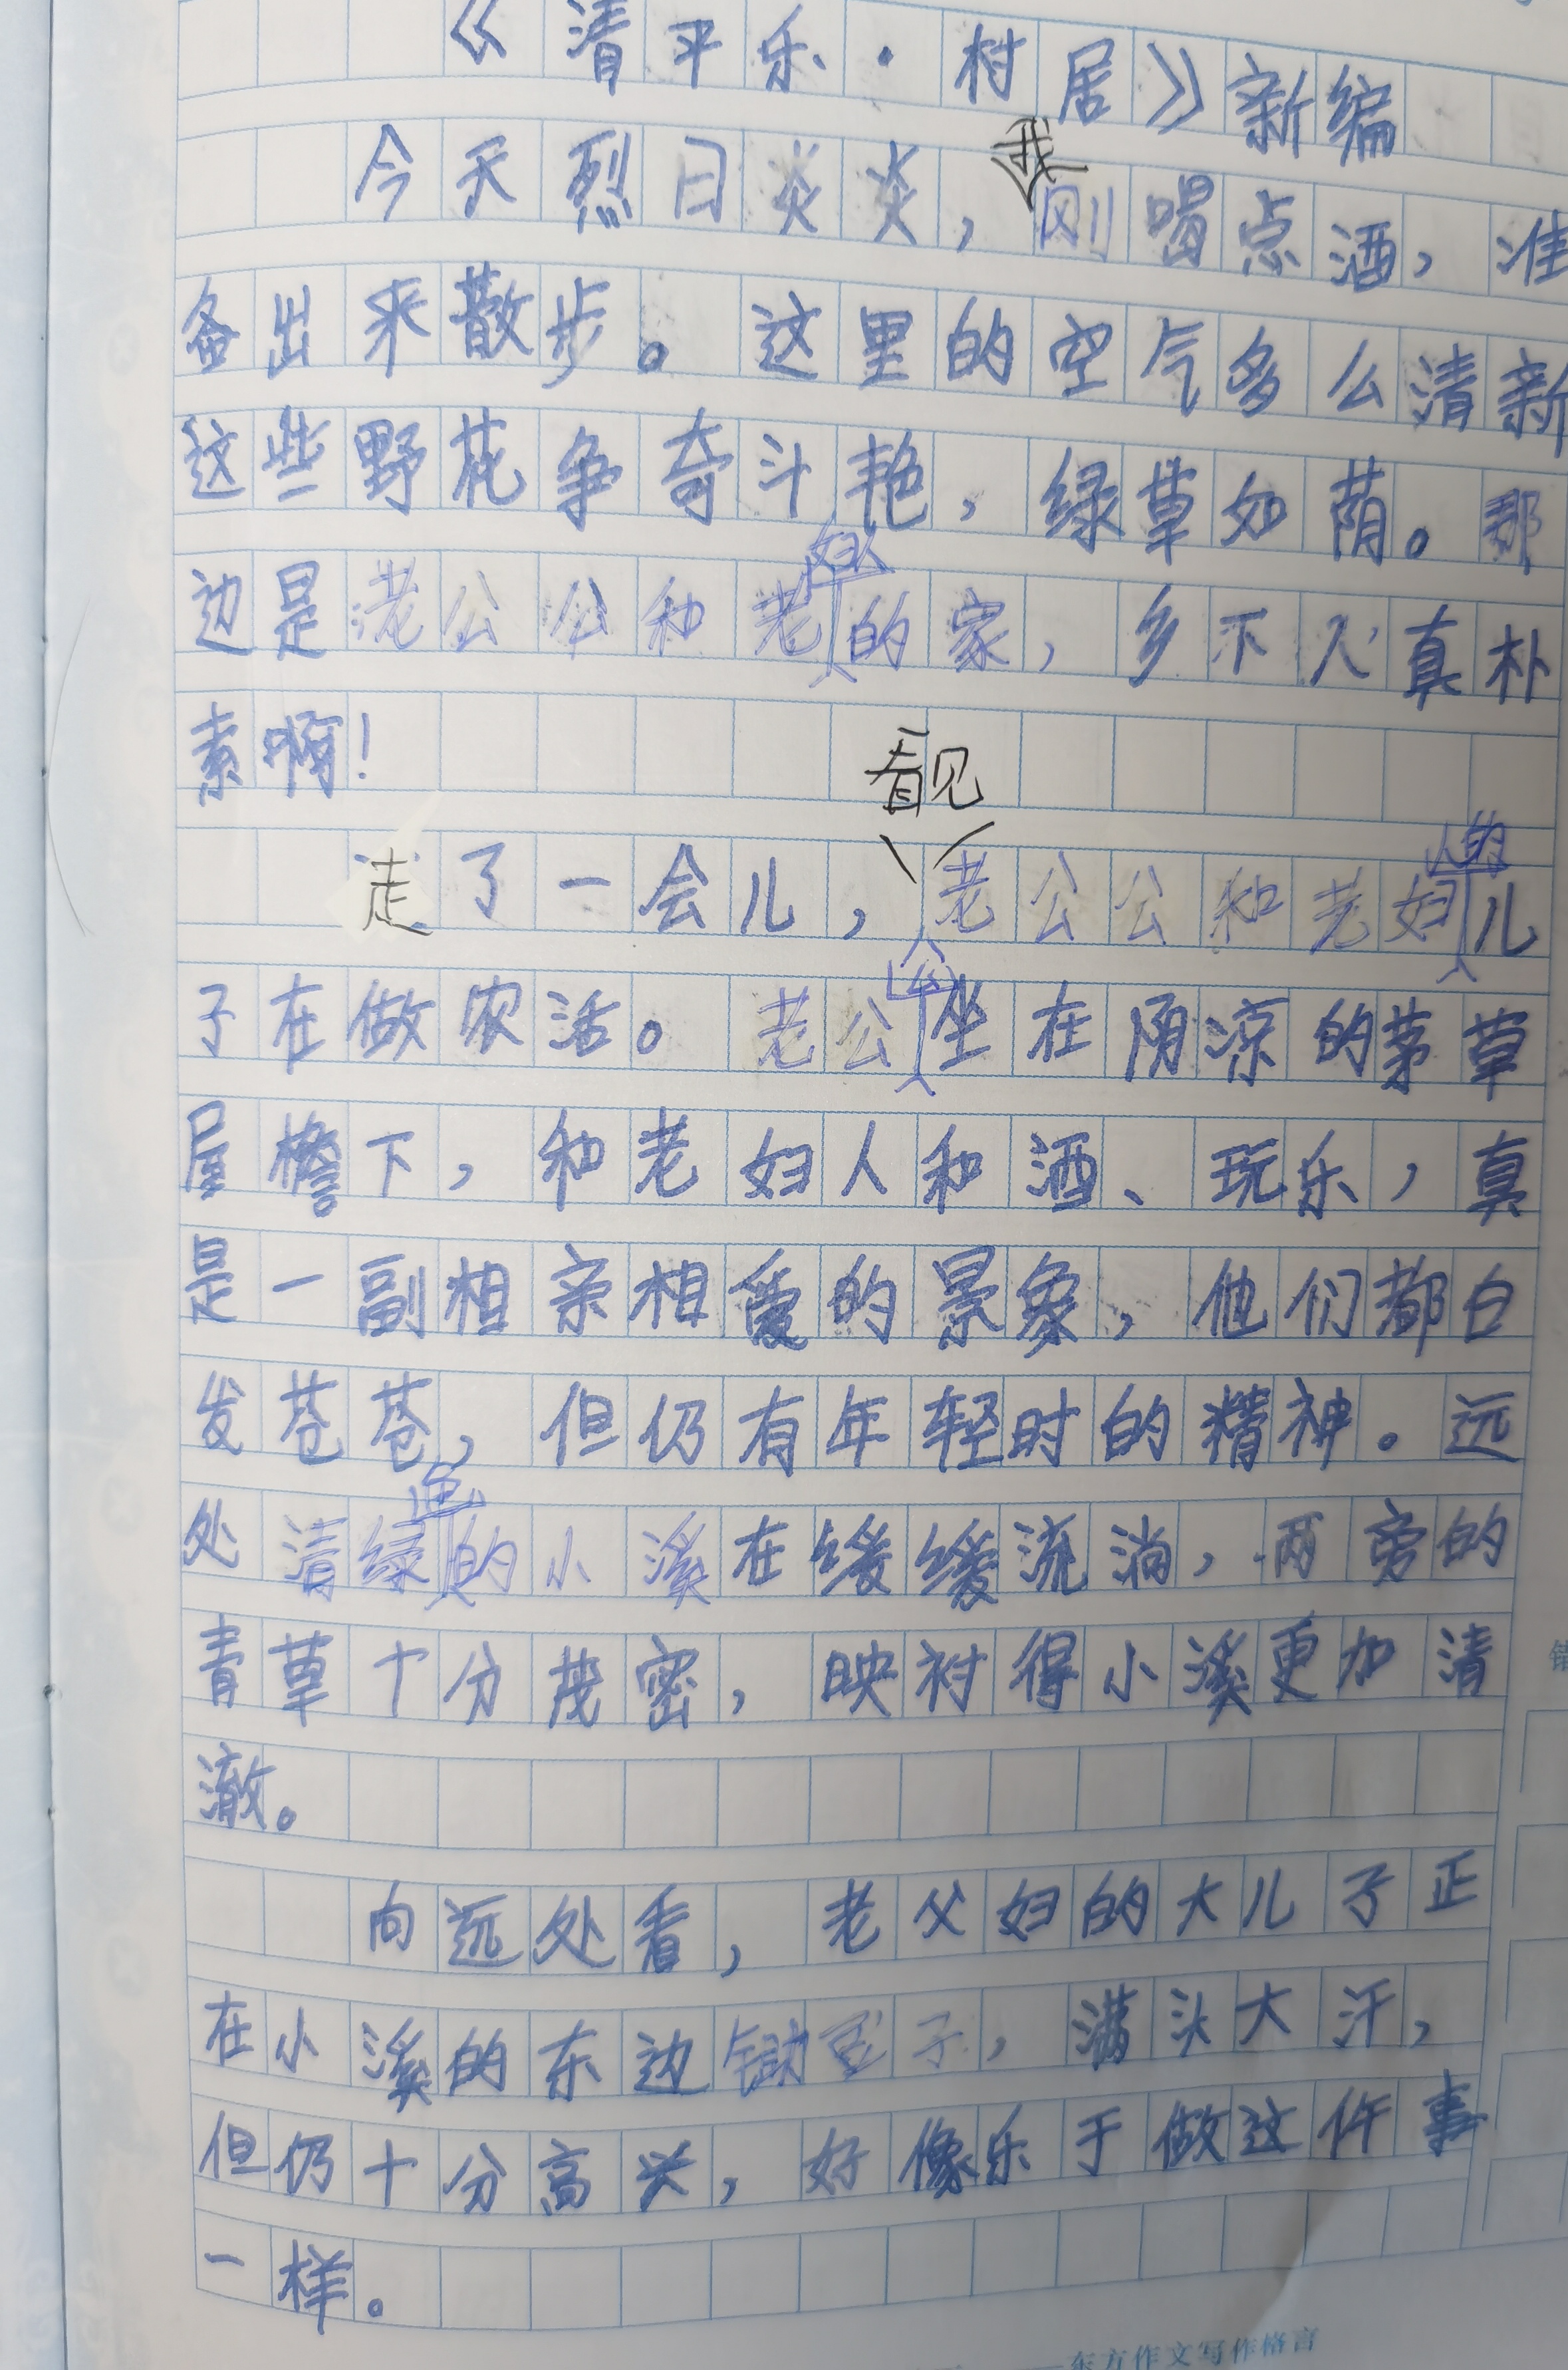 《清平乐·村居》新编
今天烈日炎炎，我刚喝点酒，准
备出来散步。这里的空气多么清新
这些野花争奇斗艳，绿草如荫。那
边是老公公和老妇人的家，乡下人真朴
素啊！
走了一会儿，看见老公公和老妇人的儿
子在做农活。老公公坐在阴凉的茅草
屋檐下，和老妇人和酒、玩乐，真
是一副相亲相爱的景象，他们都白
发苍苍，但仍有年轻时的精神。远
处清绿色的小溪在缓缓流淌，两旁的
青草十分茂密，映衬得小溪更加清
澈。
向远处看，老父妇的大儿子正
在小溪的东边锄豆子，满头大汗，
但仍十分高兴，好像乐于做这件事
一样。
——东方作文写作格言